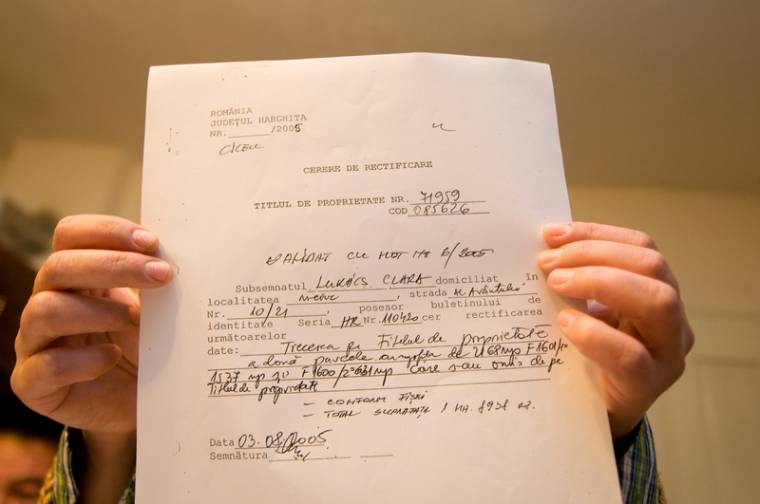 ROMÂNIA
JUDEŢUL HARGHITA
NR.______/2005
CICEU
CERERE DE RECTIFICARE
TITLUL DE PROPRIETATE NR. 71959
COD 085626
VALIDAT CU HOT NR 6/2005
Subsemnatul LUKÁCS CLARA domiciliat în
localitatea M-CIUC, strada Al. Avântului
Nr. 10/21, posesor buletinului de
identitate Seria HR Nr. 110420 cer rectificarea
următoarelor
date: Trecerea pe Titlul de proprietate
a două parcele de
1537 mp și care sau omis de pe
Titlul de proprietate
- CONFORM FIȘEI
- TOTAL SUPRAFAȚA 1 HA. 8938
Data 03.08/2005
Semnătura